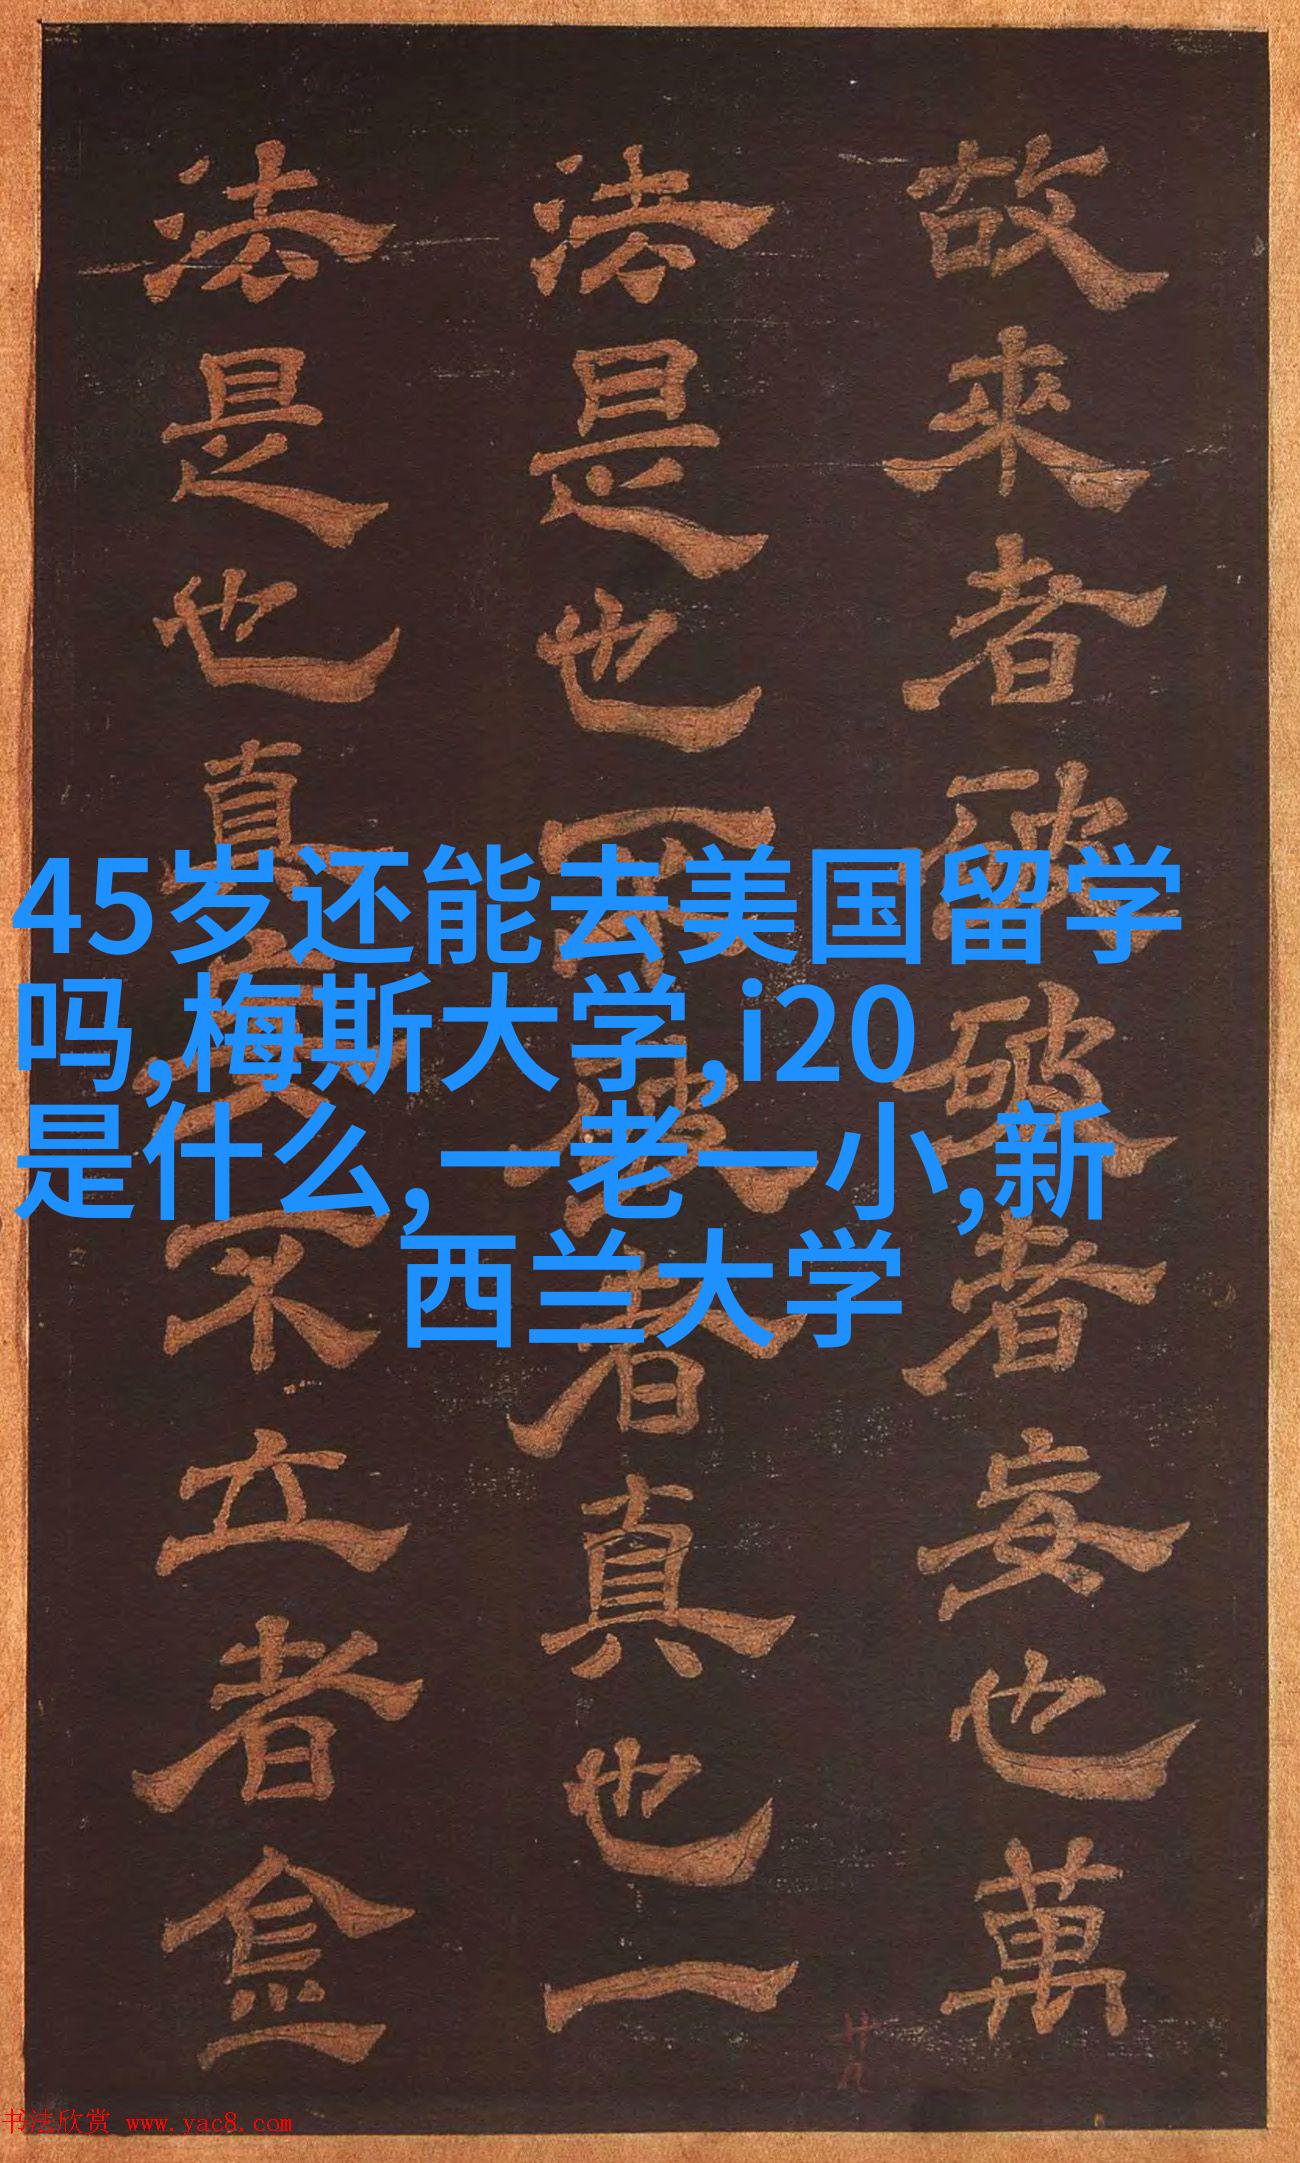 故來者破破者妄也萬
法是也不破者真也一
法是也真妄不立者
45岁还能去美国留学
吗,梅斯大学,i20
是什么,一老一小,新
西兰大学
书法欣赏 www.yac8.com